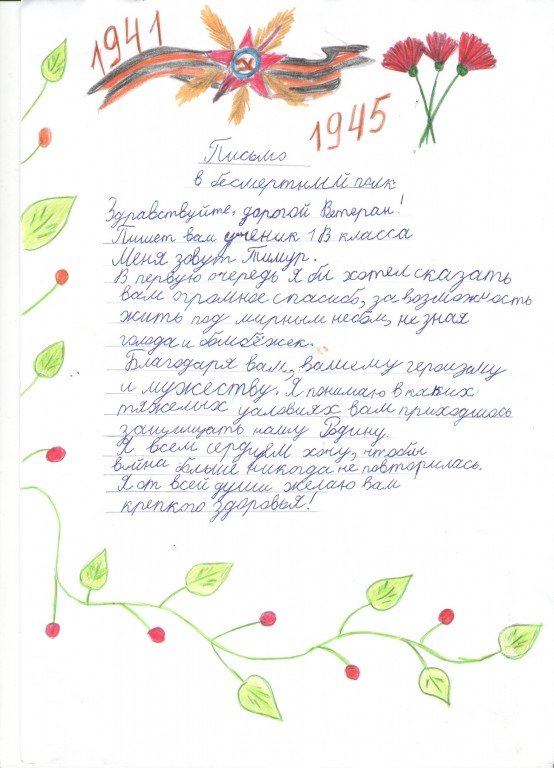 1941
1945
Письмо
в бесмертный полк
Здравствуйте, дорогой Ветеран!
Пишет вам ученик 1В класса
Меня зовут Тимур.
В первую очередь я бы хотел сказать
вам огромное спасибо, за возможность
жить под мирным небом, не зная
голода и бомбёжек.
Благодаря вам, вашему героизму
и мужеству. Я понимаю в каких
тяжелых условиях вам приходилось
защищать нашу Родину.
Я всем сердцем хочу, чтобы
война больше никогда не повторилась.
Я от всей души желаю вам
крепкого здоровья!